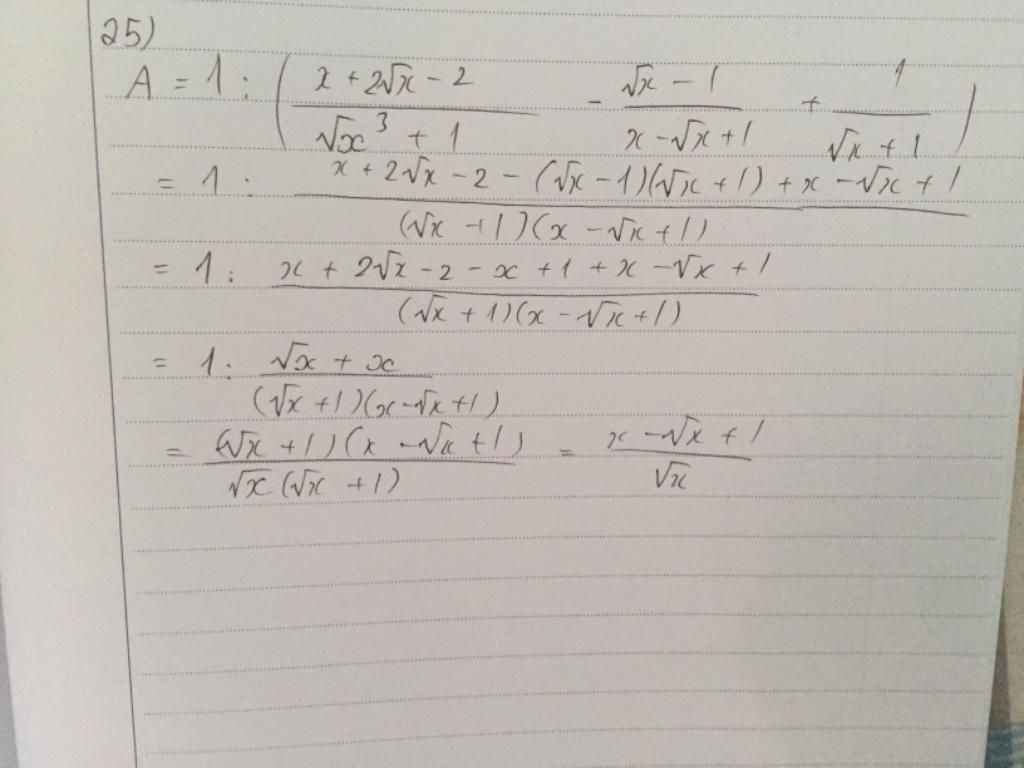 25)
A = 1 : ( (x + 2√x - 2)/(√x³ + 1) - (√x - 1)/(x - √x + 1) + 1/(√x + 1) )
= 1 : (x + 2√x - 2 - (√x - 1)(√x + 1) + x - √x + 1)/((√x + 1)(x - √x + 1))
= 1 : (x + 2√x - 2 - x + 1 + x - √x + 1)/((√x + 1)(x - √x + 1))
= 1 : (√x + x)/((√x + 1)(x - √x + 1))
= ((√x + 1)(x - √x + 1))/(√x(√x + 1)) = (x - √x + 1)/√x